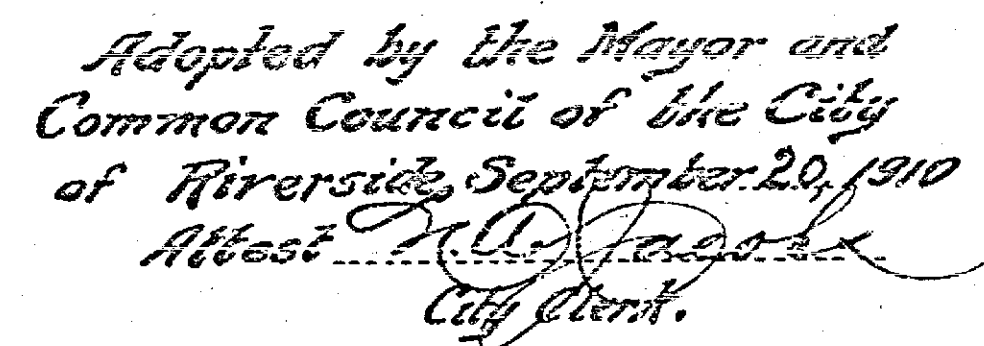 Adopted by the Mayor and
Common Council of the City
of Riverside, September 20, 1910
Attest
City Clerk.